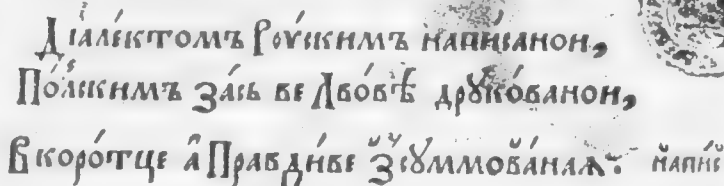 Дїале́ктомъ Ру́скимъ напи́санои,
По́лскимъ За́сь ве Лво́вѣ дрꙋко́ванои,
Вкоро́тце а Правди́ве Зсꙋммова́наѧ: напи́с